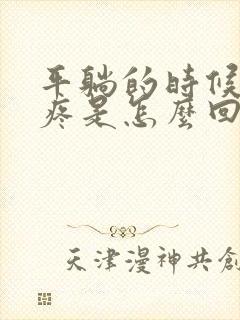 平躺的時候
疼是怎麼回
天津漫神共創